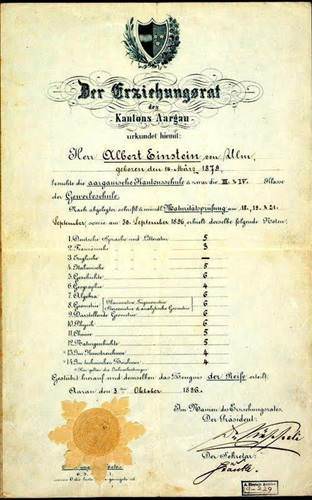 Der Erziehungsrat
des
Kantons Aargau
urkundet hiemit:
Herr Albert Einstein von Ulm,
geboren den 14. März 1879,
besuchte die aargauische Kantonsschule & zwar die III. & IV. Klasse
der Gewerbeschule.
Nach abgelegter schriftl. & mündl. Maturitätsprüfung am 18. 19. & 21.
September, sowie am 30. September 1896, erhielt derselbe folgende Noten:
1. Deutsche Sprache und Litteratur 5
2. Französische 3
3. Englische —
4. Italienische 5
5. Geschichte 6
6. Geographie 4
7. Algebra 6
8. Geometrie (Planimetrie, Trigonometrie, Stereometrie & analytische Geometrie) 6
9. Darstellende Geometrie 5
10. Physik 6
11. Chemie 5
12. Naturgeschichte 5
13. Im Kunstzeichnen 4
14. Im technischen Zeichnen 4
* Hier gelten die Jahresleistungen.
Gestützt hierauf wird demselben das Zeugnis der Reife erteilt.
Aarau den 3ten Oktober 1896.
Im Namen des Erziehungsrates,
Der Präsident:
Der Sekretär: